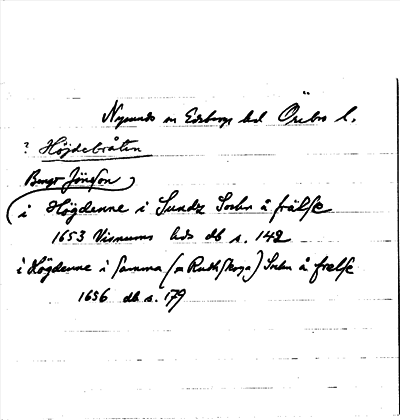 Nysunds sn Edsbergs hd Örebro l.
? Höjdebråten
Bengt Jönsson
i Högdenne i Sundz Sochn å frälse
1653 Visnums hds db s. 142
i Högdenne i samma (o: Rudhskoga) Sochn å frelse
1656 db s. 179